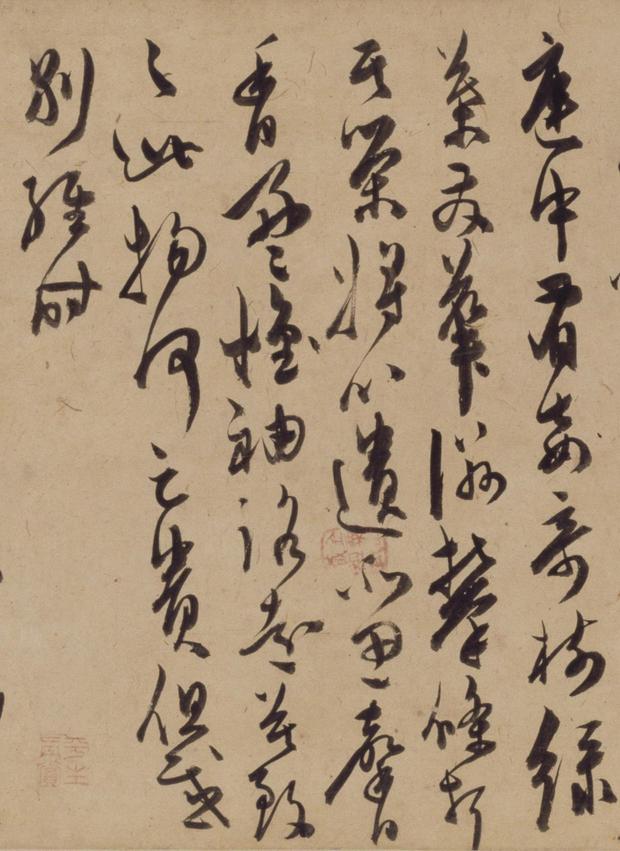 庭中有奇樹綠
葉發華滋攀條折
其榮將以遺所思馨
香盈懷袖路遠莫致
之此物何足貴但感
別經時